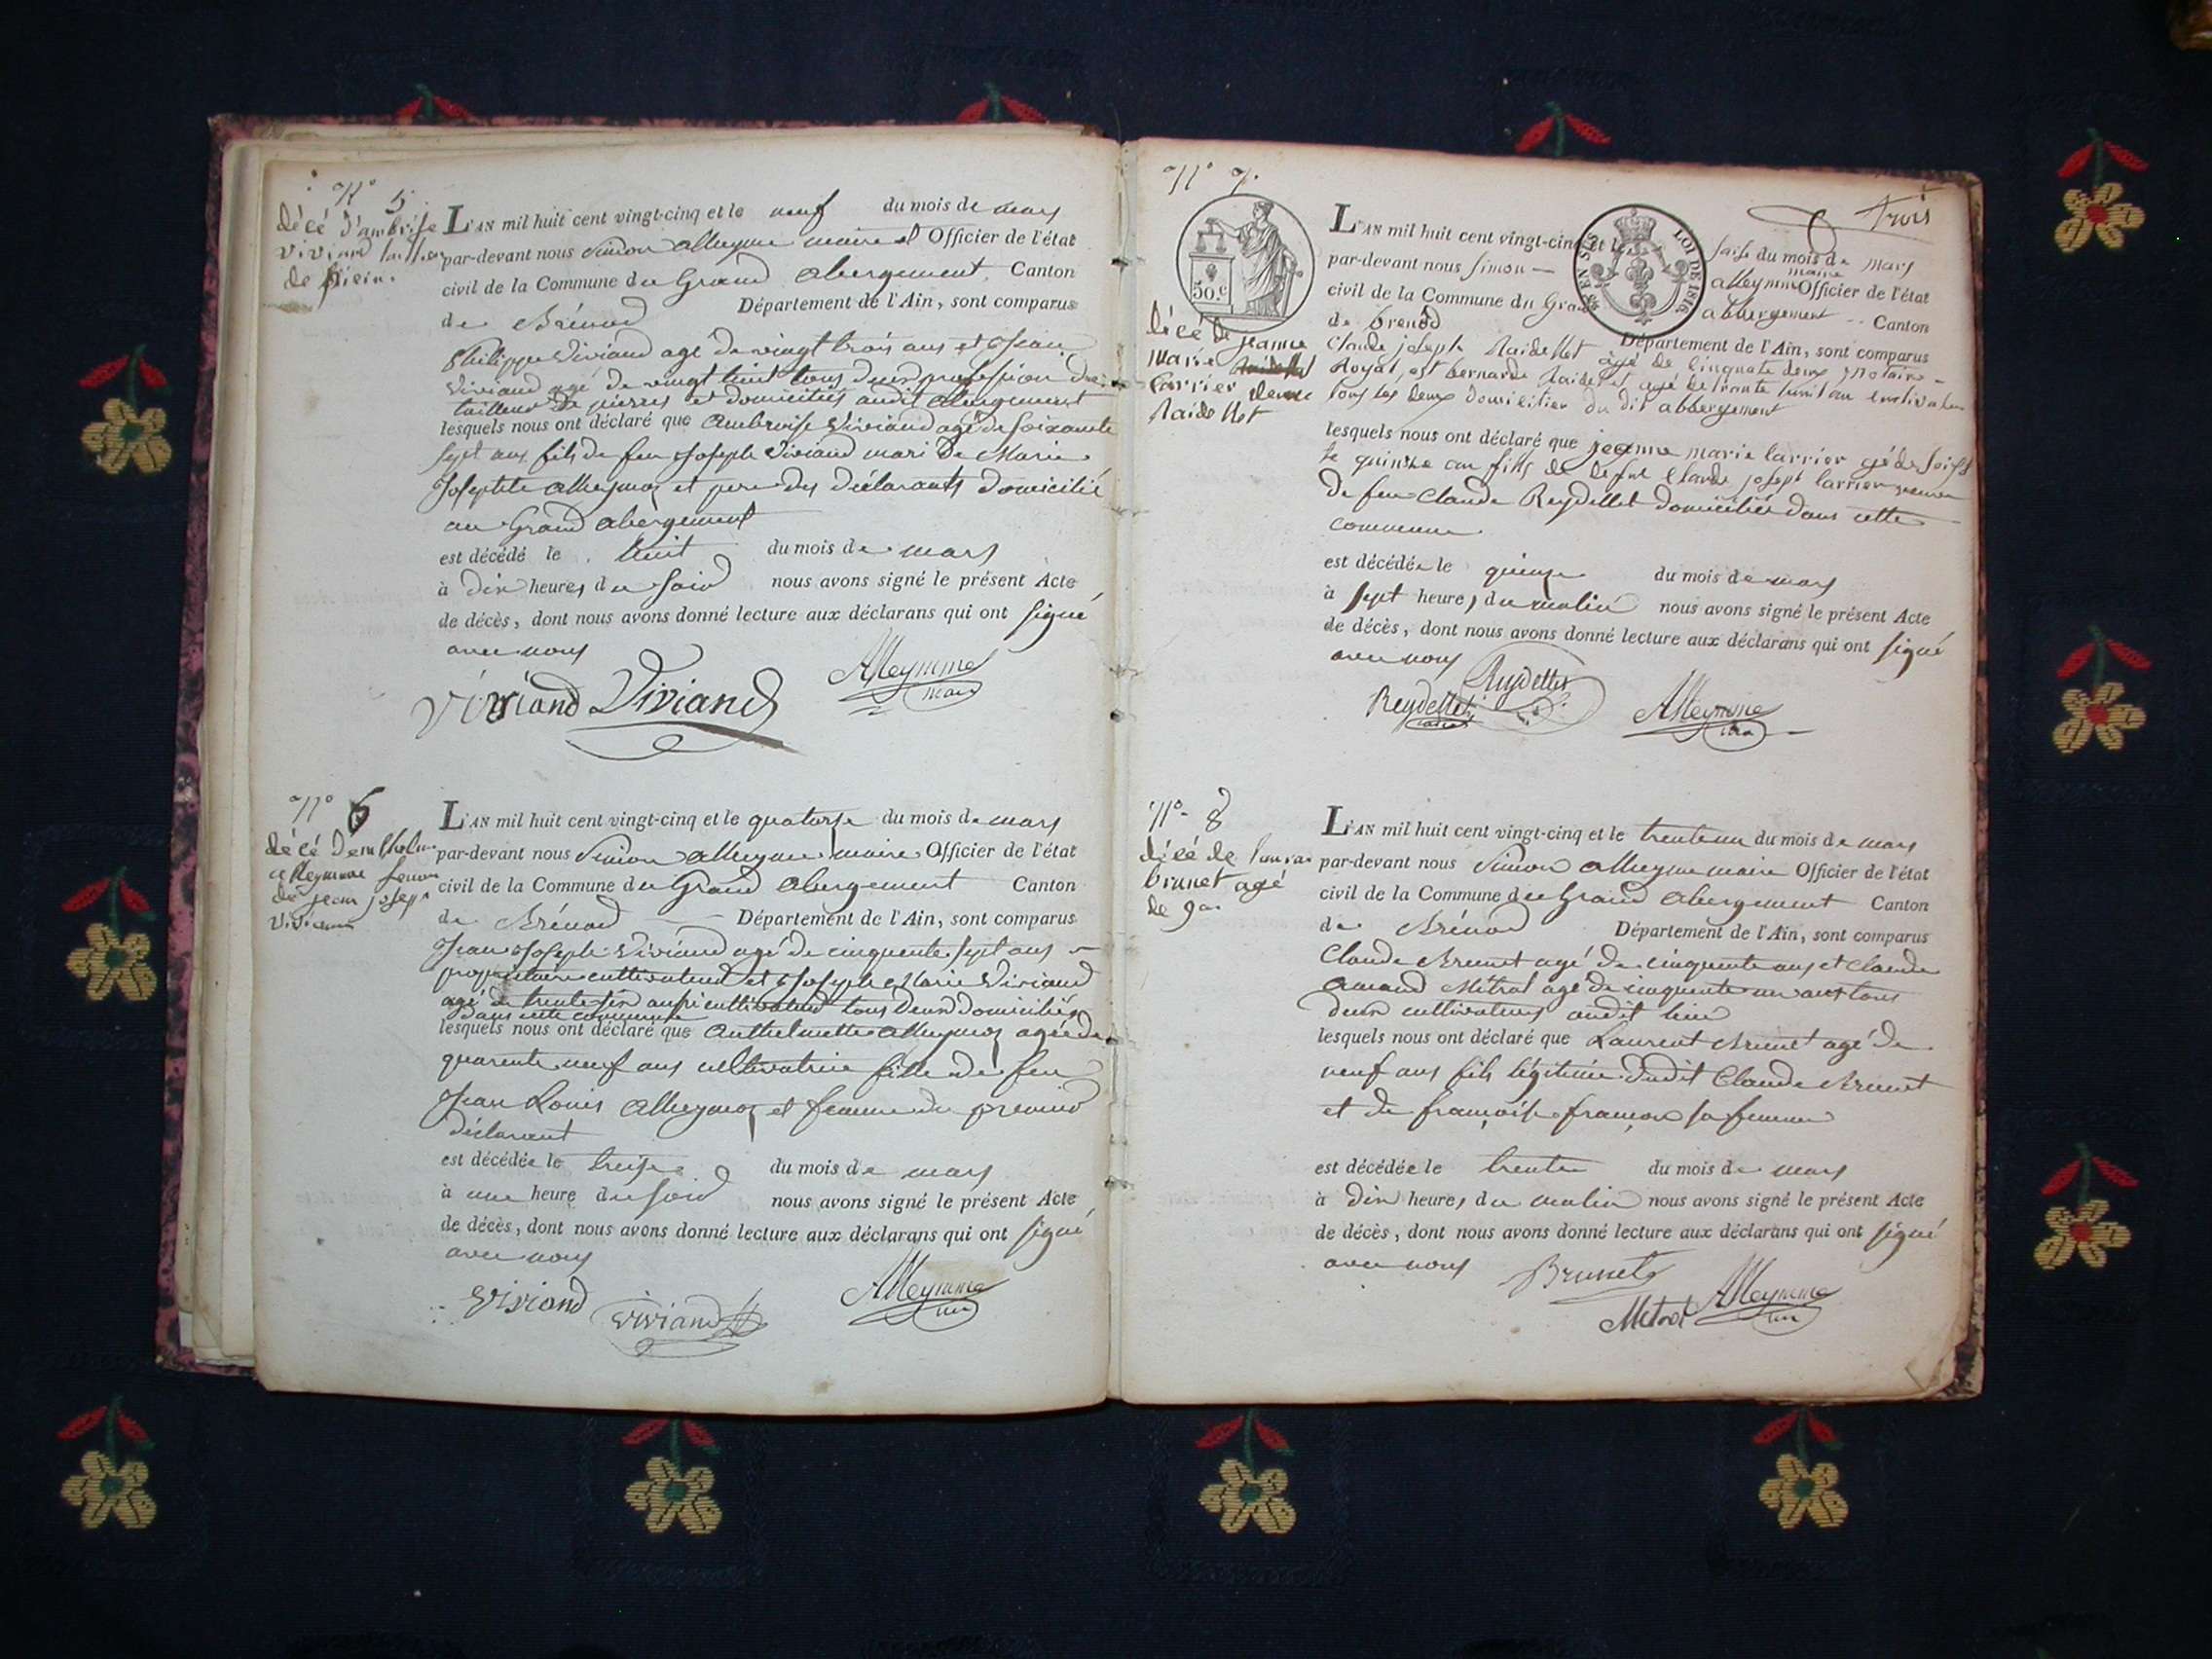 N° 5
décé d'ambrise
viviand tailleur
de pierre.
L'AN mil huit cent vingt-cinq et le neuf du mois de mars
par-devant nous Simon alleyme maire et Officier de l'état
civil de la Commune du Grand abergement Canton
de Brénod Département de l'Ain, sont comparus
Philippe Viviand agé de vingt trois ans et Jean
Viviand agé de vingt huit tous deux profession de
tailleur de pierres et domiciliés audit abergement
lesquels nous ont déclaré que Ambroise Viviand agé de soixante
sept ans fils de feu Joseph Viviand mari de Marie
Josephte et pere des déclarants domicilié
au Grand abergement
est décédé le huit du mois de mars
à dix heures du soir nous avons signé le présent Acte
de décès, dont nous avons donné lecture aux déclarans qui ont signé
avec nous
Viviand Viviand Alleymme
maire
N° 6
décé
alleymme femme
de jean joseph
viviand
L'AN mil huit cent vingt-cinq et le quatorze du mois de mars
par-devant nous Simon alleyme maire Officier de l'état
civil de la Commune du Grand abergement Canton
de Brénod Département de l'Ain, sont comparus
Jean Joseph Viviand agé de cinquante sept ans
propriétaire cultivateur et Joseph Marie Viviand
agé de trente six ans cultivateur tous deux domiciliés
dans cette commune
lesquels nous ont déclaré que Anthelmette agée de
quarente neuf ans cultivatrice fille de feu
Jean Louis et femme du premier
déclarant
est décédée le treize du mois de mars
à une heure du soir nous avons signé le présent Acte
de décès, dont nous avons donné lecture aux déclarans qui ont signé
avec nous
viviand viviand Alleymme
N° 7.
trois
50.c
EN SUS LOI DE 1816
décé de jeanne
marie
Carrier
Raidellet
L'AN mil huit cent vingt-cinq et le saise du mois de mars
par-devant nous simon alleymme maire Officier de l'état
civil de la Commune du Grand abbergement Canton
de brenod Département de l'Ain, sont comparus
Claude joseph Raidellet agé de cinquate deux notaire
Royal, et bernard Raidellet agé de trante huit an cultivateur
tous les deux domicilier du dit abbergement
lesquels nous ont déclaré que jeanne marie Carrier
quinze an fille de Claude joseph Carrier
de feu Claude Reydellet domiciliée dans cette
commune
est décédée le quinze du mois de mars
à sept heures du matin nous avons signé le présent Acte
de décès, dont nous avons donné lecture aux déclarans qui ont signé
avec nous
Reydellet Reydellet Alleymme
N° 8
décé de
brunet agé
de 9 an
L'AN mil huit cent vingt-cinq et le trente un du mois de mars
par-devant nous Simon alleyme maire Officier de l'état
civil de la Commune du Grand abergement Canton
de Brénod Département de l'Ain, sont comparus
Claude Brunet agé de cinquente ans et Claude
Amand Métral agé de cinquente un ans tous
deux cultivateurs audit lieu
lesquels nous ont déclaré que Laurent Brunet agé de
neuf ans fils légitime dudit Claude Brunet
et de françoise françon sa femme
est décédée le trente du mois de mars
à dix heures du matin nous avons signé le présent Acte
de décès, dont nous avons donné lecture aux déclarans qui ont signé
avec nous
Brunet
Metral Alleymme